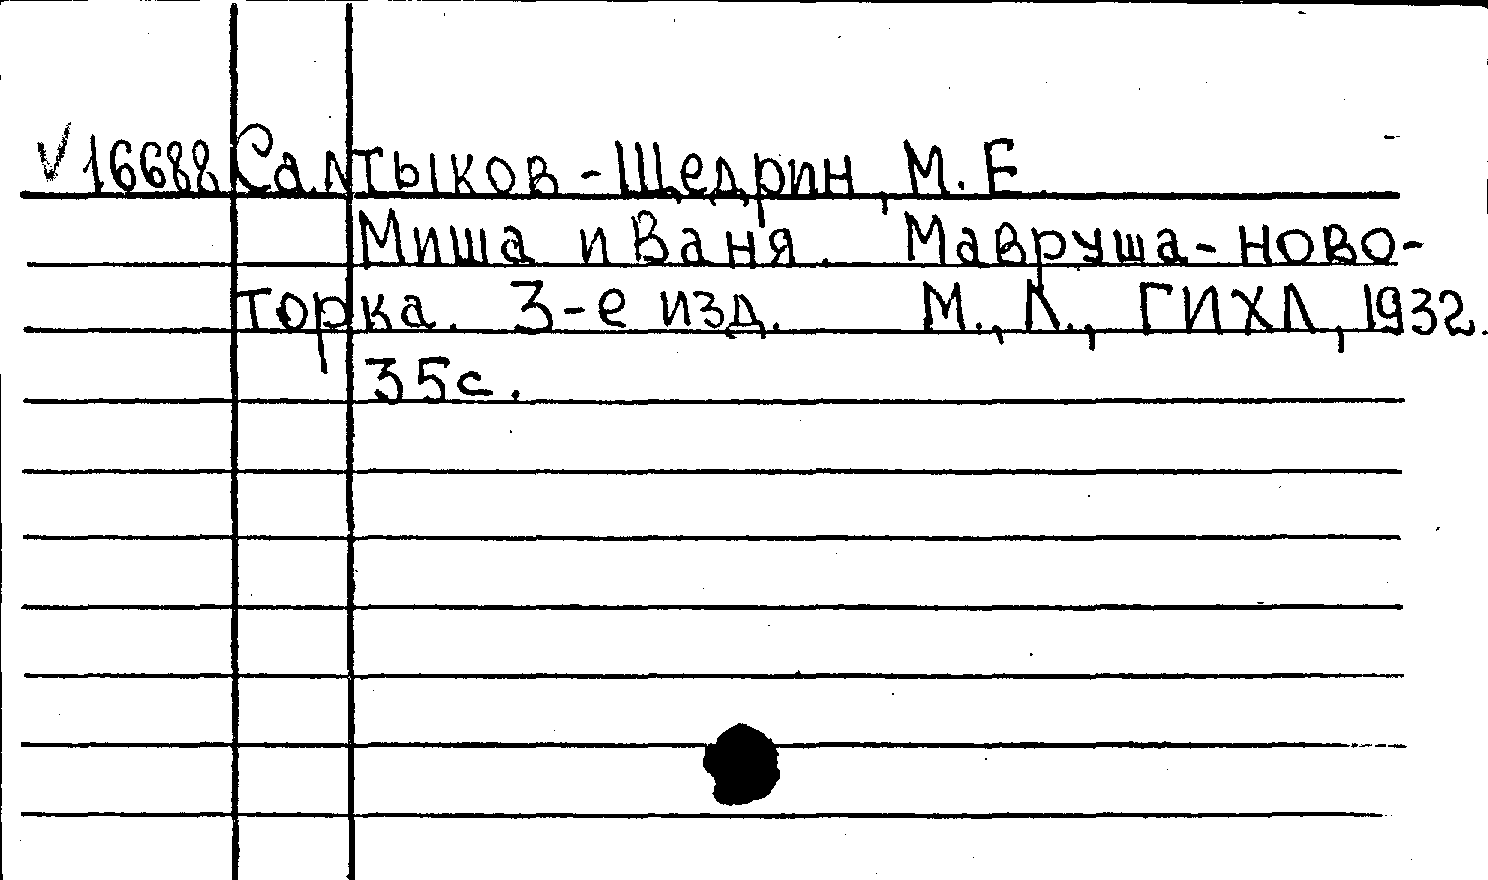 √ 16688 Салтыков-Щедрин, М. Е.
Миша и Ваня. Мавруша-ново-
торка. 3-е изд. М., Л., ГИХЛ, 1932.
35с.